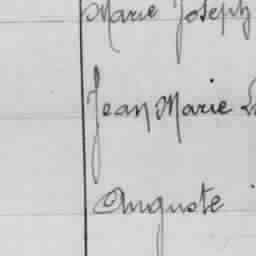 Marie Joseph
Jean Marie
Auguste